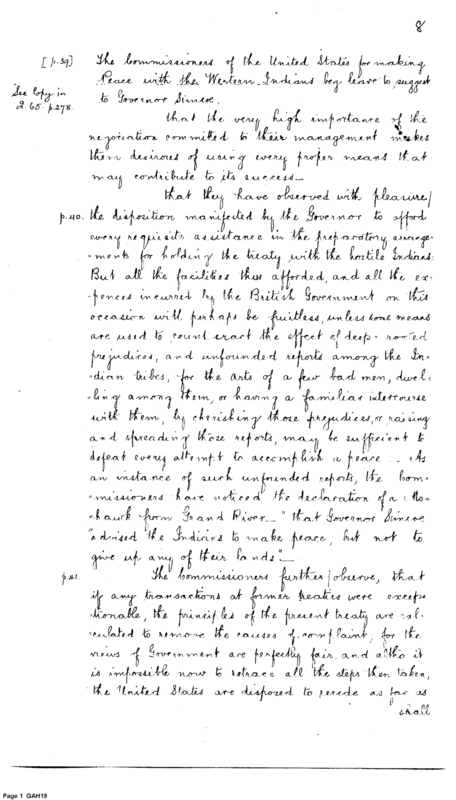 8
[p.39] The Commissioners of the United States for making
Peace with the Western Indians beg leave to suggest
See Copy in
Q.65. p.278.
to Governor Simcoe,
that the very high importance of the
negociation committed to their management makes
them desirous of using every proper means that
may contribute to its success—
that they have observed with pleasure/
p.40. the disposition manifested by the Governor to afford
every requisite assistance in the preparatory arrange-
-ments for holding the treaty with the hostile Indians.
But all the facilities thus afforded, and all the ex-
-pences incurred by the British Government on this
occasion will perhaps be fruitless, unless some means
are used to counteract the effect of deep-rooted
prejudices, and unfounded reports among the In-
-dian tribes; for the arts of a few bad men, dwel-
-ling among them, or having a familiar intercourse
with them, by cherishing those prejudices, or raising
and spreading those reports, may be sufficient to
defeat every attempt to accomplish a peace — As
an instance of such unfounded reports, the Com-
-missioners have noticed the declaration of a Mo-
-hawk from Grand River — "that Governor Simcoe
"advised the Indians to make peace; but not to
give up any of their lands"—
p.41. The Commissioners further/observe, that
if any transactions at former treaties were excep-
-tionable, the principles of the present treaty are cal-
-culated to remove the causes of complaint; for the
views of Government are perfectly fair, and altho it
is impossible now to retrace all the steps then taken,
the United States are disposed to recede as far as
shall
Page 1 GAH19